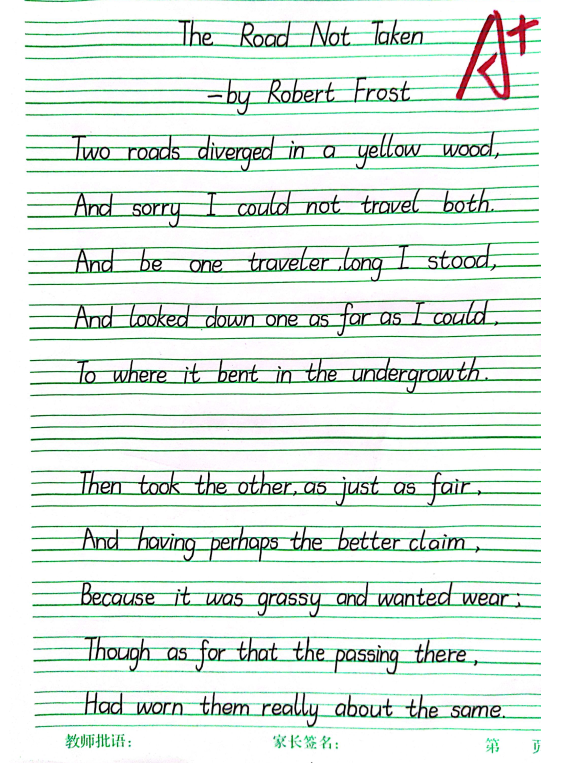 The Road Not Taken
A+
—by Robert Frost
Two roads diverged in a yellow wood,
And sorry I could not travel both.
And be one traveler, long I stood,
And looked down one as far as I could,
To where it bent in the undergrowth.
Then took the other, as just as fair,
And having perhaps the better claim,
Because it was grassy and wanted wear;
Though as for that the passing there,
Had worn them really about the same.
教师批语: 家长签名: 第 页